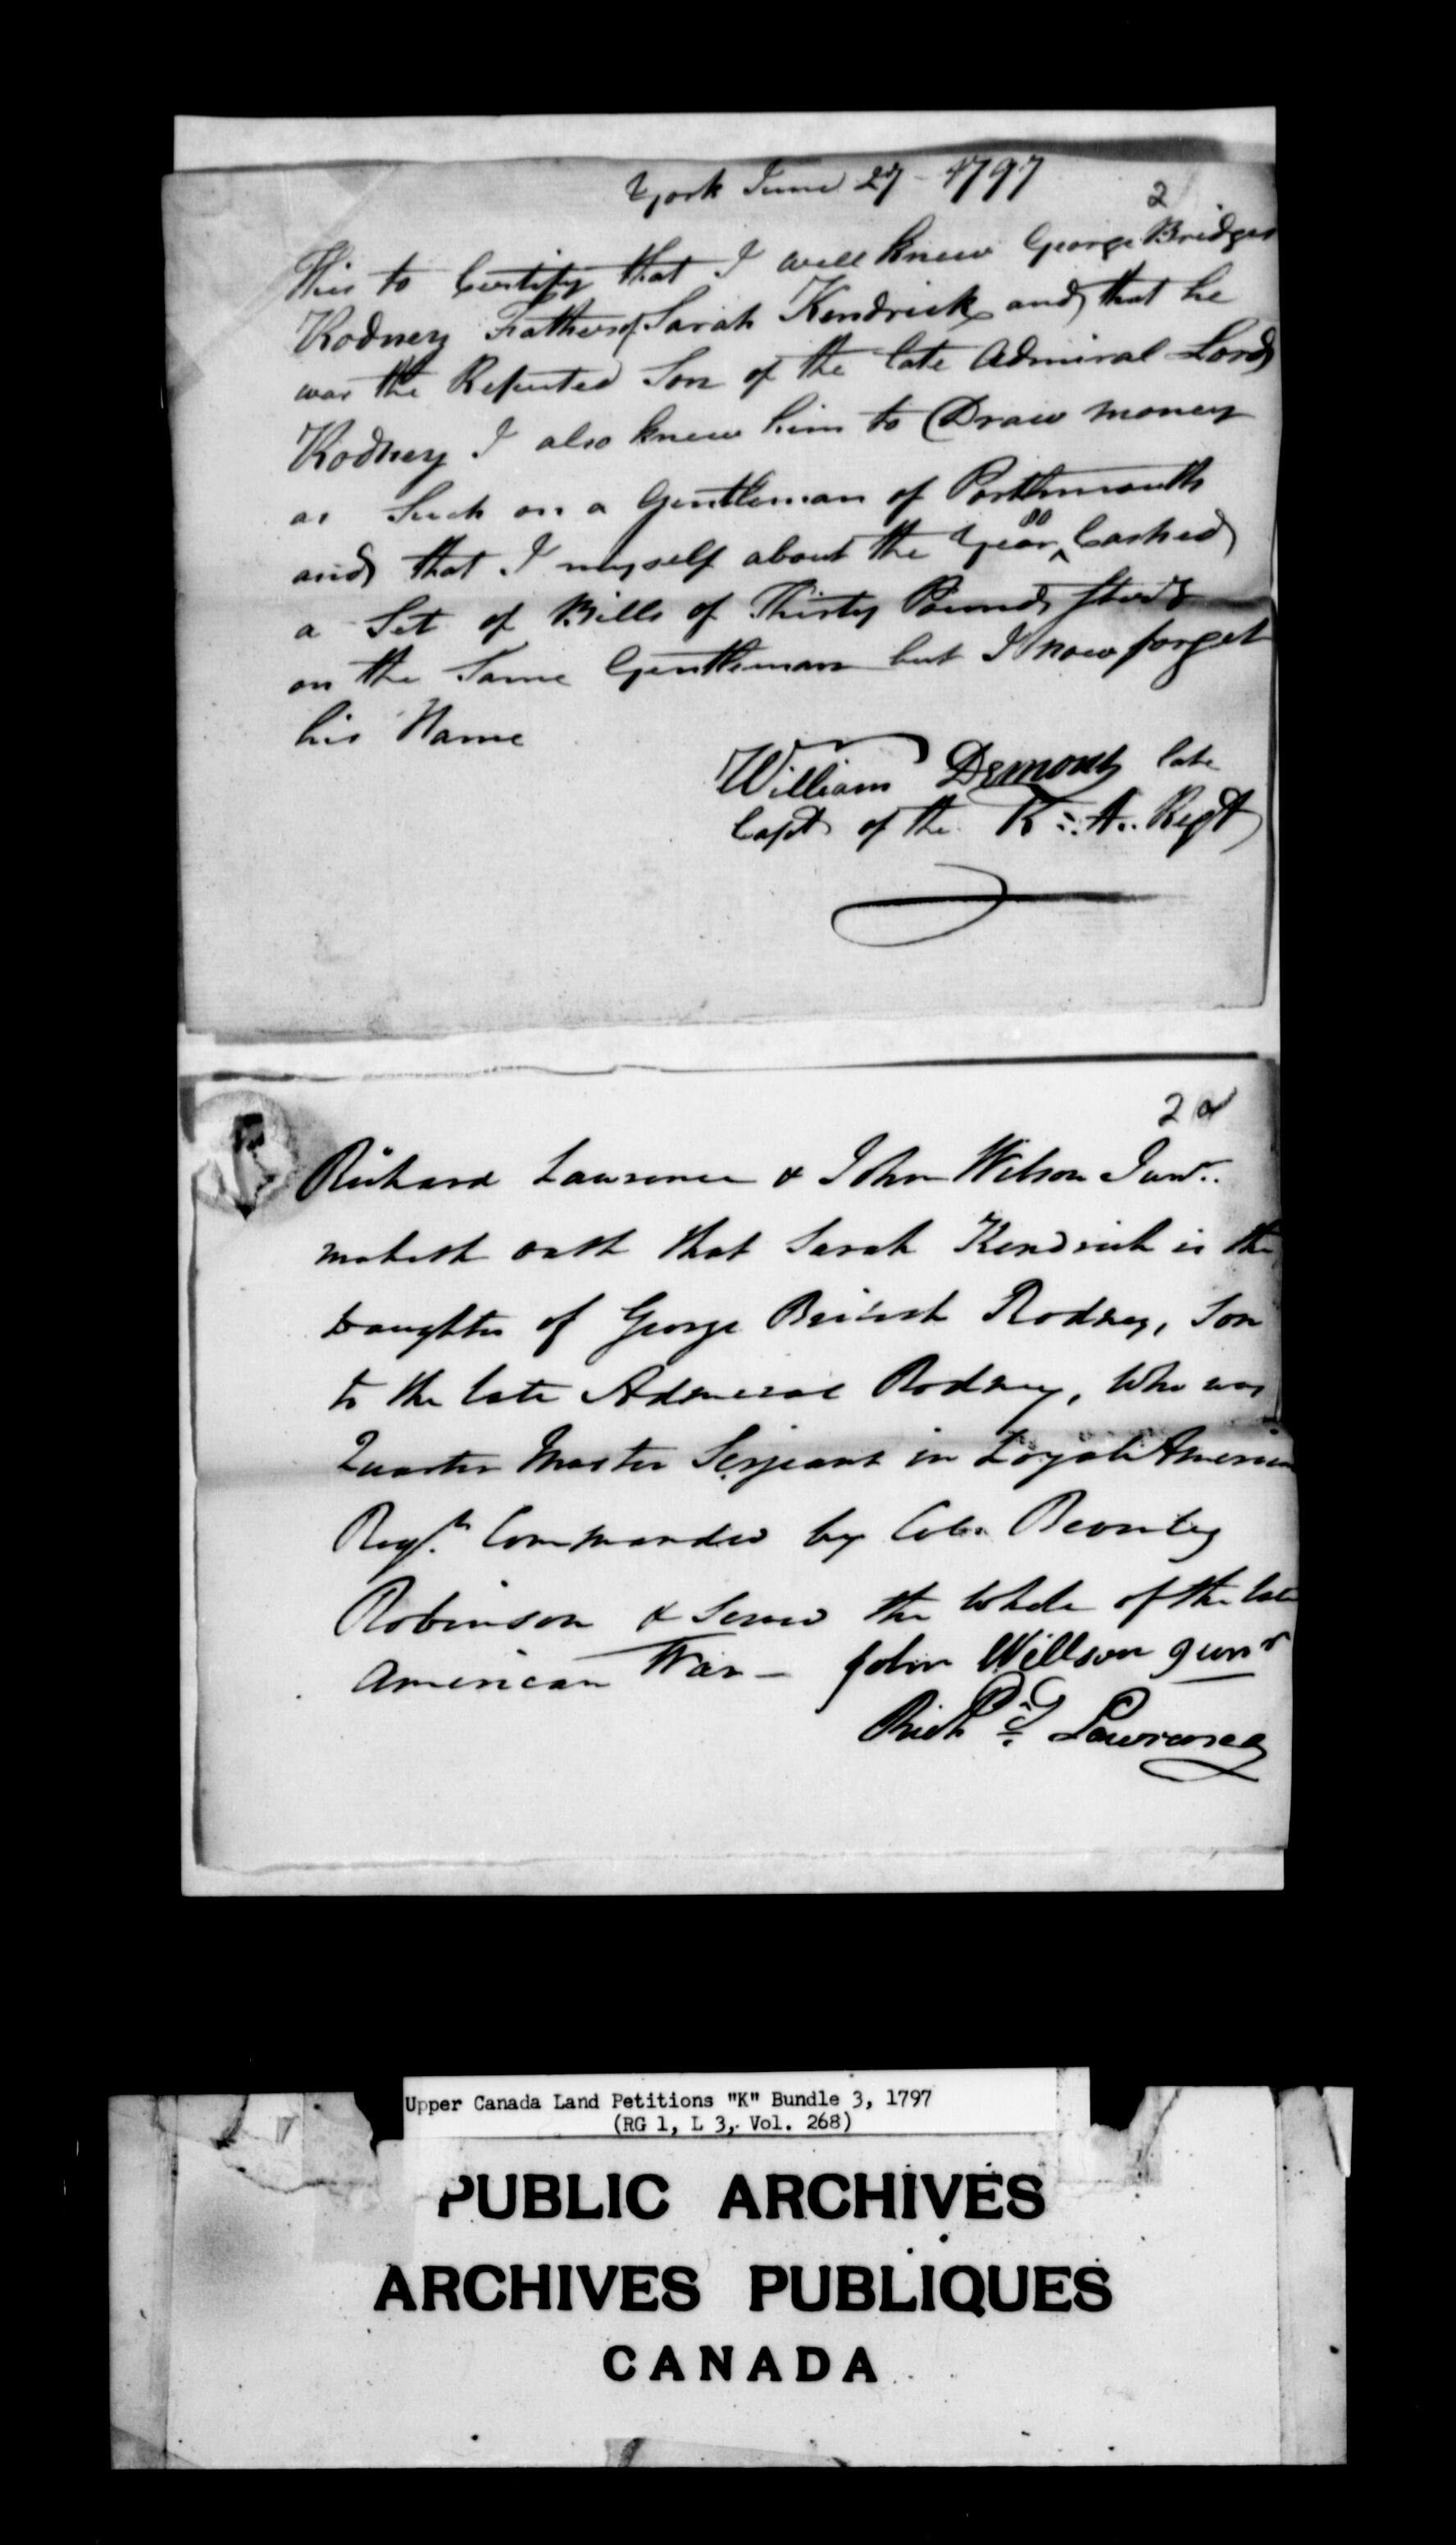 York June 27 - 1797
2
This to Certify that I well knew George Bridges
Rodney Father of Sarah Kendrick and that he
was the Reputed Son of the late Admiral Lord
Rodney I also knew him to Draw money
as Such on a Gentleman of Porthmouth
and that I myself about the Year 80 Cashed
a Set of Bills of Thirty Pounds
on the Same Gentleman but I now forget
his Name
William Demont late
Capt of the K. A. Regt
2a
Richard Lawrence & John Wilson Junr.
maketh oath that Sarah Kendrick is the
Daughter of George Rodney, Son
to the late Admeral Rodney, Who was
Quarter Master Serjeant in Loyal American
Regt. Commanded by Colo. Beverley
Robinson & Served the Whole of the late
American War - John Willson Junr
Richd Lawrence
Upper Canada Land Petitions "K" Bundle 3, 1797
(RG 1, L 3, Vol. 268)
PUBLIC ARCHIVES
ARCHIVES PUBLIQUES
CANADA